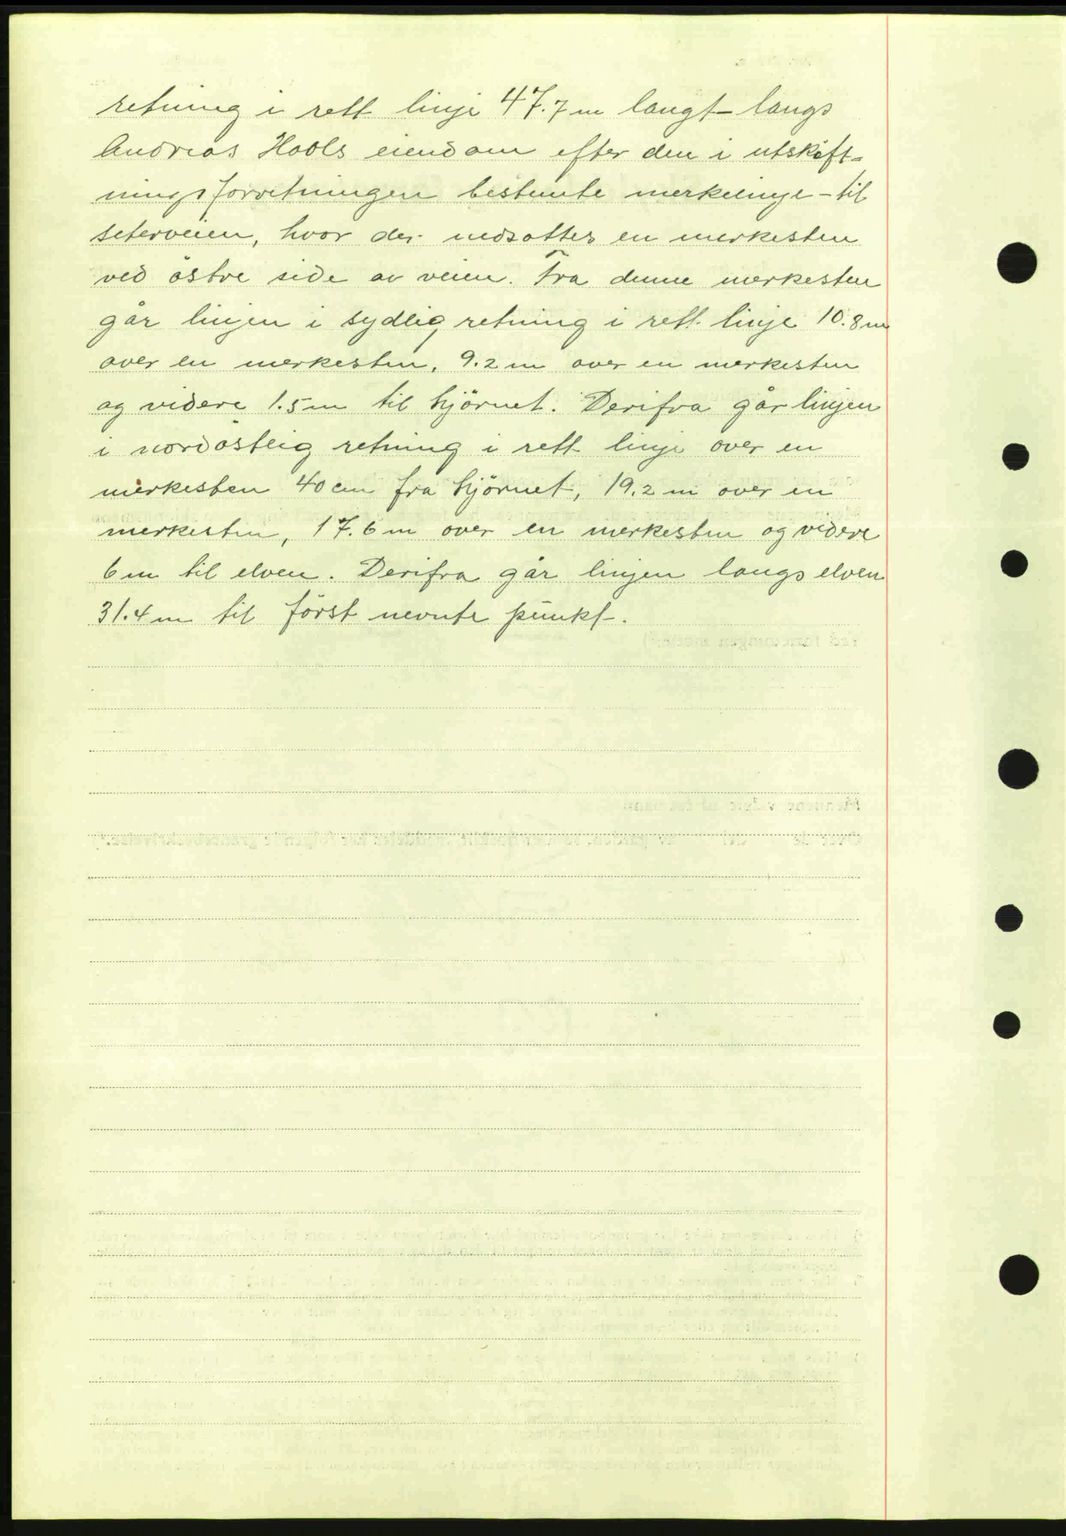 retning i rett linje 47.7 m langt langs
Andreas Hools eiendom efter den i utskift-
ningsforretningen bestemte merkelinje - til
seterveien, hvor der nedsattes en merkesten
ved östre side av veien. Fra denne merkesten
går linjen i sydlig retning i rett linje 10.8 m
over en merkesten, 9.2 m over en merkesten
og videre 1.5 m til hjörnet. Derifra går linjen
i nordöstlig retning i rett linje over en
merkesten 40 cm fra hjörnet, 19.2 m over en
merkesten, 17.6 m over en merkesten og videre
6 m til elven. Derifra går linjen langs elven
31.4 m til först nevnte punkt.